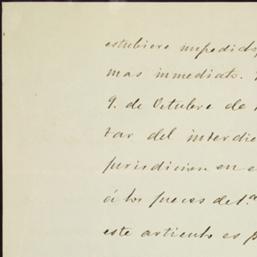 estubiere impedido,
mas inmediato.
9. de Octubre de
tar del interdic
jurisdiccion en e
á los jueces de 1.ª
este articulo es p